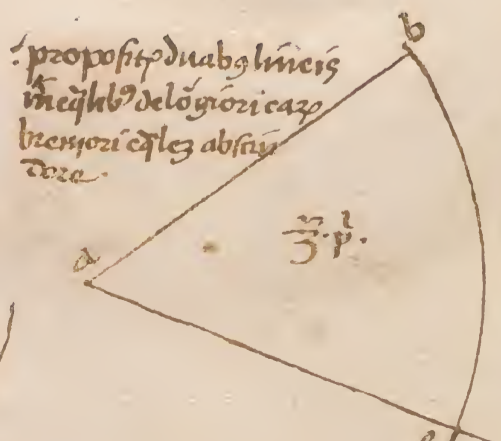 propositꝭ duabꝰ lineis
ineq̄libꝰ de lōgiori eaꝝ
breuiori eq̄leꝫ abscin
dere.
b
a
3. p.